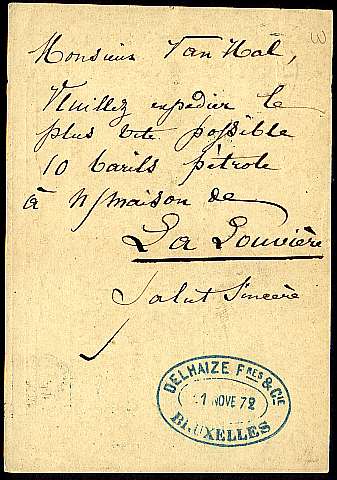 Monsieur Van Hal,
Veuillez expédier le
plus vite possible
10 barils pétrole
à N/maison de
La Louvière
Salut Sincère
DELHAIZE FRES & CIE
1 NOVE 72
BRUXELLES